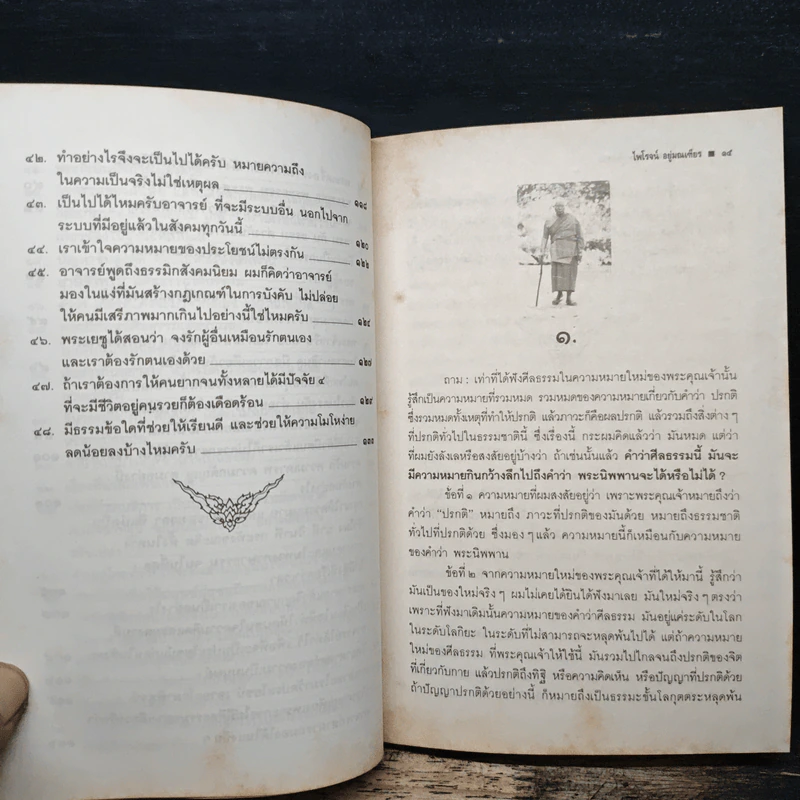 ๔๒. ทำอย่างไรจึงจะเป็นไปได้ครับ หมายความถึง
ในความเป็นจริงไม่ใช่เหตุผล ๑๑๘
๔๓. เป็นไปได้ไหมครับอาจารย์ ที่จะมีระบบอื่น นอกไปจาก
ระบบที่มีอยู่แล้วในสังคมทุกวันนี้ ๑๒๐
๔๔. เราเข้าใจความหมายของประโยชน์ไม่ตรงกัน ๑๒๒
๔๕. อาจารย์พูดถึงธรรมิกสังคมนิยม ผมก็คิดว่าอาจารย์
มองในแง่ที่มันสร้างกฎเกณฑ์ในการบังคับ ไม่ปล่อย
ให้คนมีเสรีภาพมากเกินไปอย่างนี้ใช่ไหมครับ ๑๒๔
๔๖. พระเยซูได้สอนว่า จงรักผู้อื่นเหมือนรักตนเอง
และเราต้องรักตนเองด้วย ๑๒๗
๔๗. ถ้าเราต้องการให้คนยากจนทั้งหลายได้มีปัจจัย ๔
ที่จะมีชีวิตอยู่คนรวยก็ต้องเดือดร้อน ๑๒๙
๔๘. มีธรรมข้อใดที่ช่วยให้เรียนดี และช่วยให้ความโมโหง่าย
ลดน้อยลงบ้างไหมครับ
ไพโรจน์ อยู่มณเฑียร ■ ๑๕
๑.
ถาม : เท่าที่ได้ฟังศีลธรรมในความหมายใหม่ของพระคุณเจ้านั้น
รู้สึกเป็นความหมายที่รวมหมด รวมหมดของความหมายเกี่ยวกับคำว่า ปรกติ
ซึ่งรวมหมดทั้งเหตุที่ทำให้ปรกติ แล้วภาวะก็คือผลปรกติ แล้วรวมถึงสิ่งต่าง ๆ
ที่ปรกติทั่วไปในธรรมชาตินี้ ซึ่งเรื่องนี้ กระผมคิดแล้วว่า มันหมด แต่ว่า
ที่ผมยังลังเลหรือสงสัยอยู่บ้างว่า ถ้าเช่นนั้นแล้ว คำว่าศีลธรรมนี้ มันจะ
มีความหมายกินกว้างลึกไปถึงคำว่า พระนิพพานจะได้หรือไม่ได้ ?
ข้อที่ ๑ ความหมายที่ผมสงสัยอยู่ว่า เพราะพระคุณเจ้าหมายถึงว่า
คำว่า “ปรกติ” หมายถึง ภาวะที่ปรกติของมันด้วย หมายถึงธรรมชาติ
ทั่วไปที่ปรกติด้วย ซึ่งมอง ๆ แล้ว ความหมายนี้ก็เหมือนกับความหมาย
ของคำว่า พระนิพพาน
ข้อที่ ๒ จากความหมายใหม่ของพระคุณเจ้าที่ได้ให้มานี้ รู้สึกว่า
มันเป็นของใหม่จริง ๆ ผมไม่เคยได้ยินได้ฟังมาเลย มันใหม่จริง ๆ ตรงว่า
เพราะที่ฟังมาเดิมนั้นความหมายของคำว่าศีลธรรม มันอยู่แค่ระดับในโลก
ในระดับโลกิยะ ในระดับที่ไม่สามารถจะหลุดพ้นไปได้ แต่ถ้าความหมาย
ใหม่ของศีลธรรม ที่พระคุณเจ้าให้ใช้นี้ มันรวมไปไกลจนถึงปรกติของจิต
ที่เกี่ยวกับกาย แล้วปรกติถึงทิฐิ หรือความคิดเห็น หรือปัญญาที่ปรกติด้วย
ถ้าปัญญาปรกติด้วยอย่างนี้ ก็หมายถึงเป็นธรรมะชั้นโลกุตตระหลุดพ้น